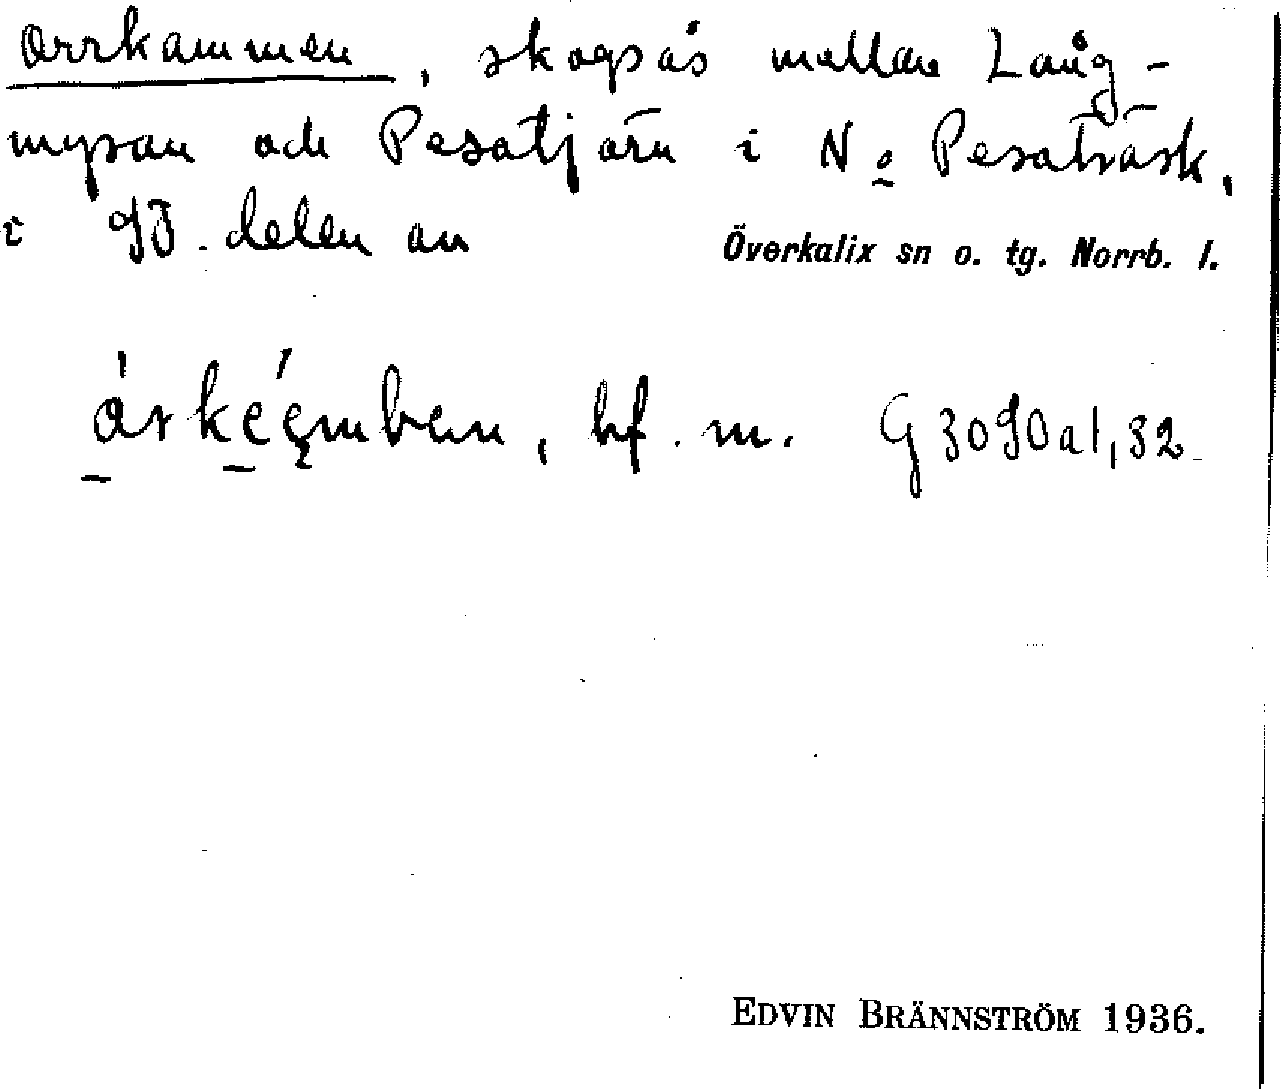 Orrkammen, skogsås mellan Lång-
mysan och Pesatjärn i No Pesaträsk,
i SO. delen av Överkalix sn o. tg. Norrb. l.
bf. m. G 3090 a1, 32
EDVIN BRÄNNSTRÖM 1936.